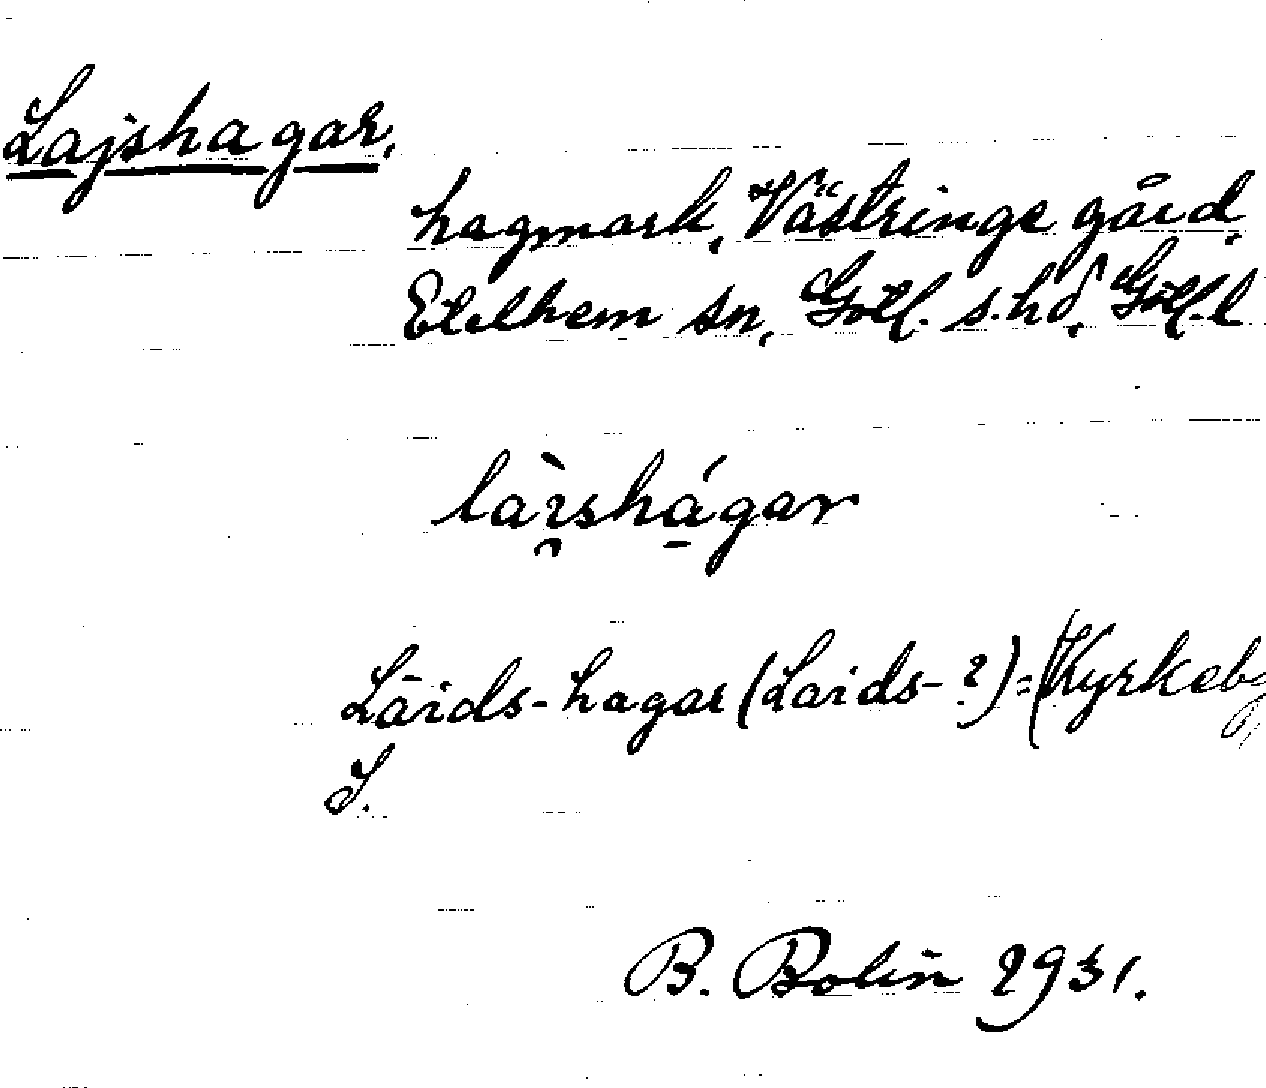 Lajshagar,
hagmark, Västringe gård,
Etelhem sn, Gotl. s. hd, Gotl. l
la`ɪ̯shá̱gar
Lāids-hagar (Laids-?) = (Kyrkeby
S.
B. Bolin 1931.